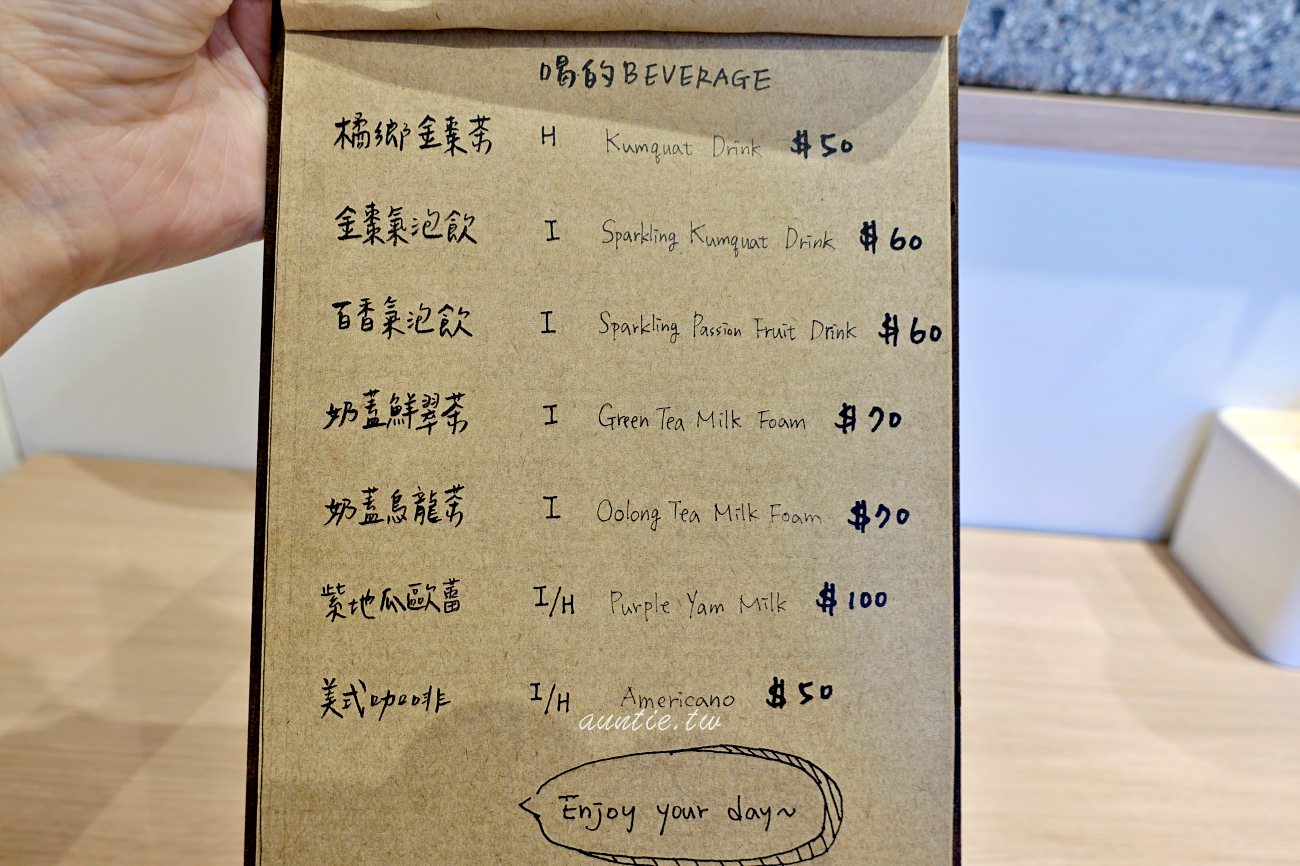 喝的BEVERAGE
橘鄉金棗茶 H Kumquat Drink $50
金棗氣泡飲 I Sparkling Kumquat Drink $60
百香氣泡飲 I Sparkling Passion Fruit Drink $60
奶蓋鮮翠茶 I Green Tea Milk Foam $70
奶蓋烏龍茶 I Oolong Tea Milk Foam $70
紫地瓜歐蕾 I/H Purple Yam Milk $100
美式咖啡 I/H Americano $50
auntie.tw
Enjoy your day~